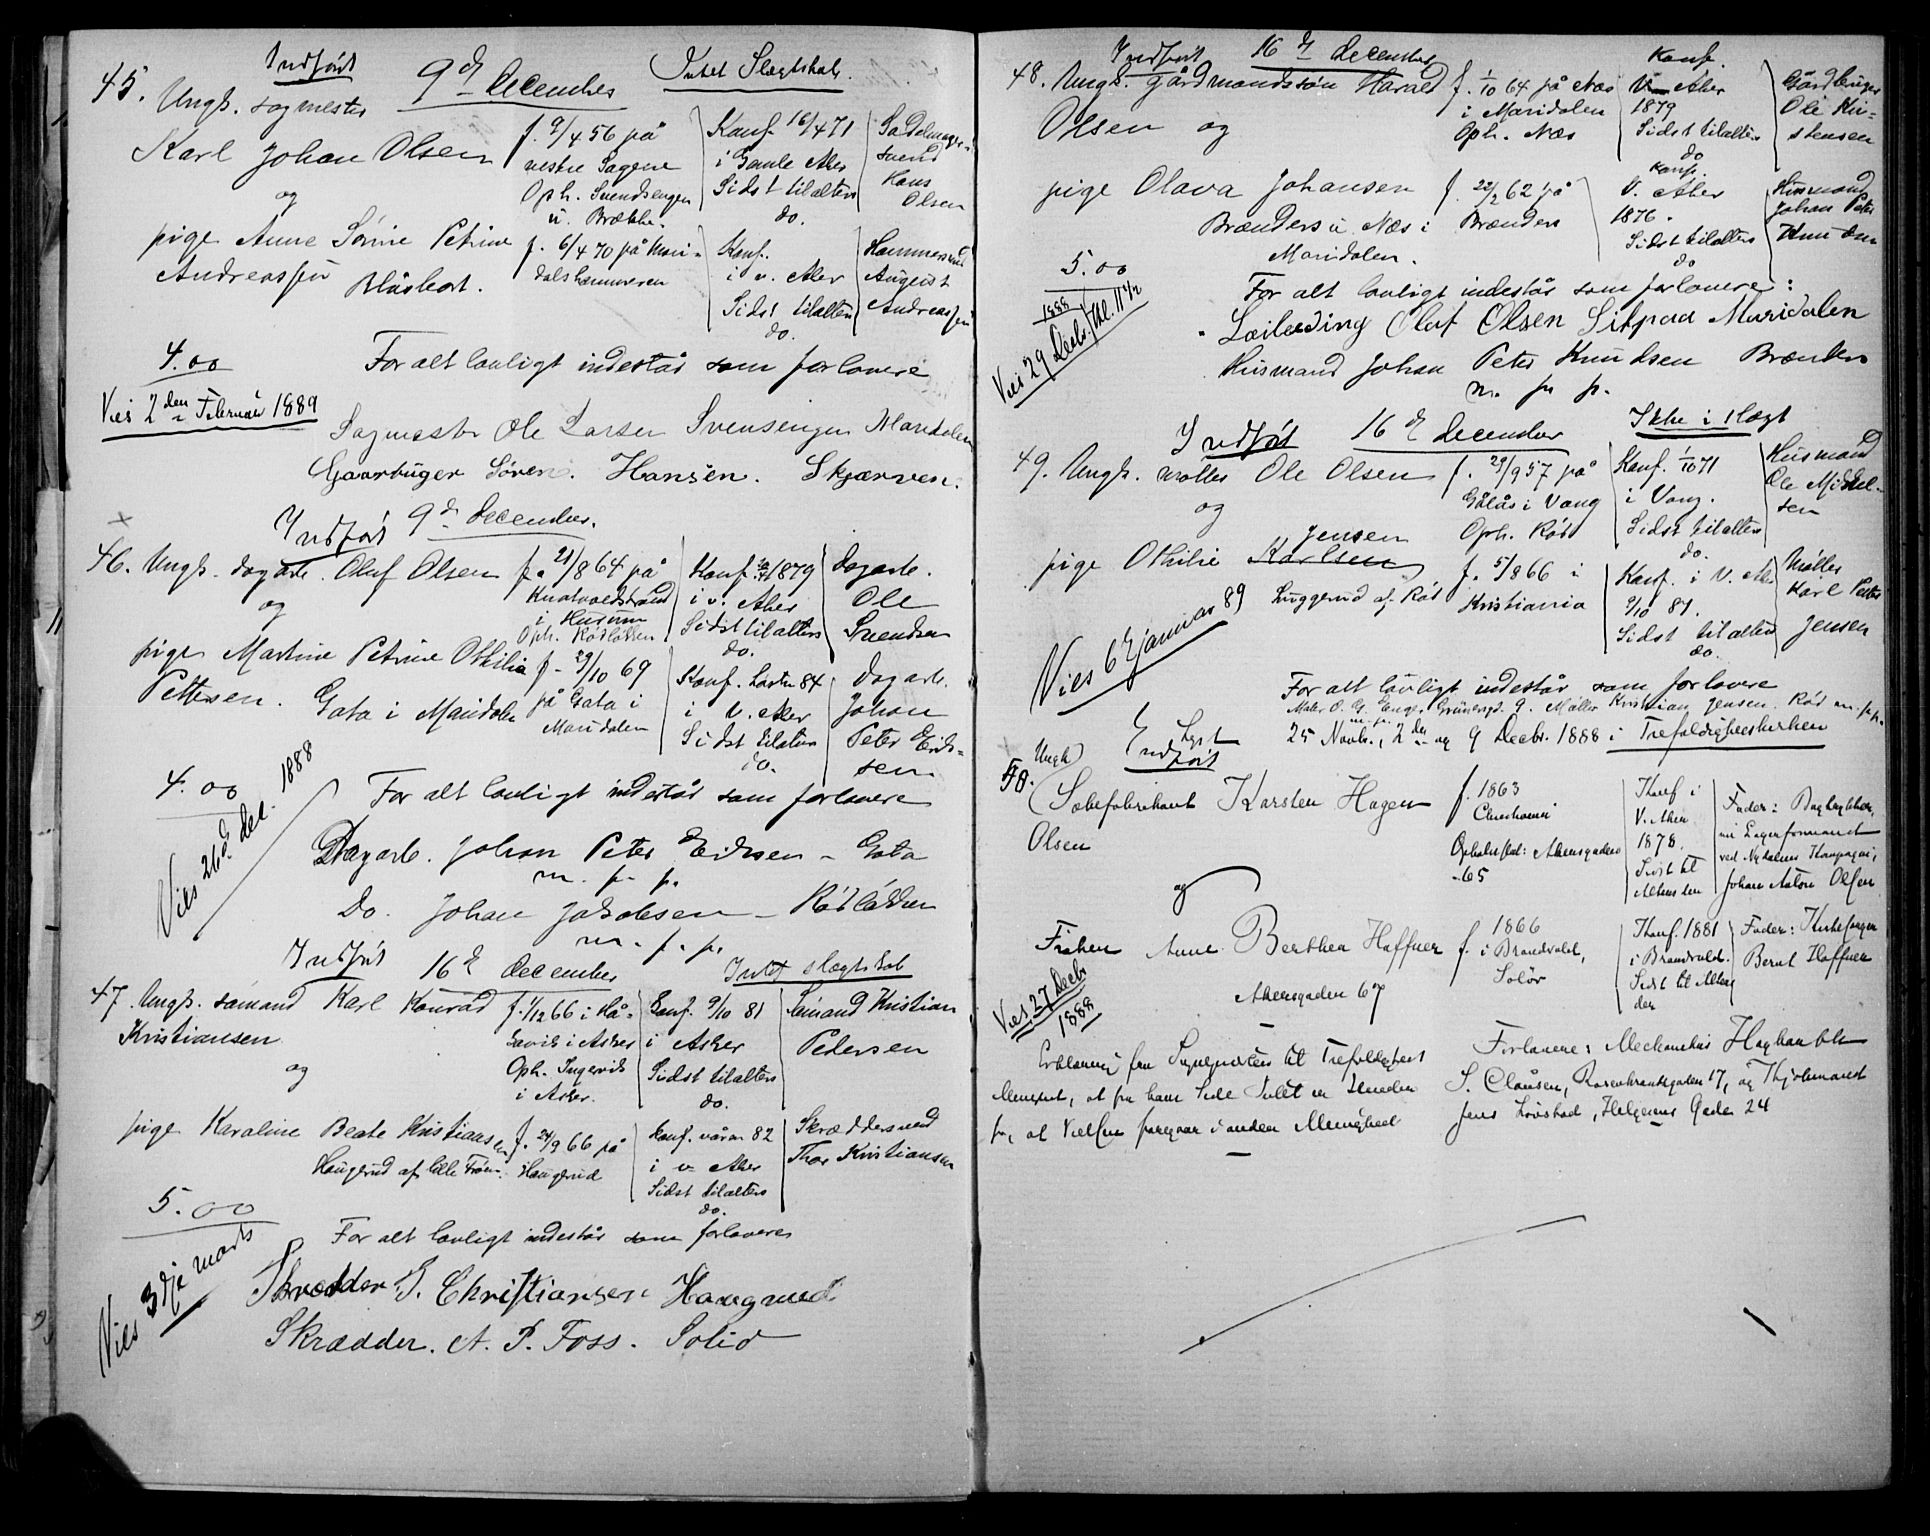 Indført
9de December
Intet Slægtskab.
45. Ungk. sagmester
Karl Johan Olsen
og
f. 9/4 56 på
vestre Sagene
Oph. Svendsengen
u. Brække.
Konf. 16/4 71
i Gamle Aker
Sidst tilalters
do.
Sadelmager-
svend
Hans
Olsen
pige Anne Sørine Petrine
Andreassen
Blåsbort.
f. 6/4 70 på Mari-
dalshammeren
Konf.
i v. Aker
Sidst tilalters
do.
Hammersmed
August
Andreassen
4.00
For alt lovligt indestår som forlovere
Viet 2den Februar 1889
Sagmester Ole Larsen Svensengen Maridalen
Gaarbruger Søren Hansen. Skjærven.
Indført 9de December.
46. Ungk. dagarb. Oluf Olsen
og
f. 21/8 64 på
i Hurum
Oph. Rødløkken
Konf. 1879
i v. Aker
Sidst tilalters
do.
Dagarb.
Ole
Svendsen
pige Martine Petrine Othilia
Pettersen. Gata i Maridalen
f. 29/10 69
på Gata i
Maridalen
Konf. høsten 84
i V. Aker
Sidst tilalters
do.
Dagarb.
Johan
Peter Erik-
sen
4.00
Viet 26de Dec. 1888
For alt lovligt indestår som forlovere
Dagarb. Johan Peter Eriksen – Gata
m. p. p.
Do. Johan Jakobsen – Rødløkken
m. p. p.
Indført 16de December
Intet slægtskab
47. Ungk. sømand Karl Konrad
Kristiansen
og
f. 1/12 66 i Hå-
kavik i Asker
Oph. Ingervik
i Asker.
Konf. 9/10 81
i Asker
Sidst tilalters
do.
Sømand Kristian
Pedersen
pige Karoline Beate Kristiansen
Haugerud af lille Frøen.
f. 24/9 66 på
Haugerud
Konf. våren 82
i v. Aker
Sidst tilalters
do.
Skræddersvend
Thor Kristiansen
5.00
For alt lovligt indestår som forlovere
Viet 3dje marts
Skrædder T. Christiansen Haugerud.
Skrædder. A. P. Foss. Solid
Indført 16de December
48. Ungk. gårdmandssøn Harald
Olsen og
f. 1/10 64 på Næs
i Maridalen
Oph. Næs
Konf.
V. Aker
1879
Sidst tilalters
do
Gårdbruger
Ole Kri-
stensen
pige Olava Johansen
Brænders u. Næs i
Maridalen.
f. 22/2 62 på
Brænders
Konf.
V. Aker
1876.
Sidst tilalters
do
Husmand
Johan Peter
Knudsen
5.00
1888
Viet 29 Decbr. kl. 11 1/2
For alt lovligt indestår som forlovere:
Leilending Oluf Olsen Sitpaa Maridalen
Husmand Johan Peter Knudsen Brænders
m. p. p.
Indført 16de December
Ikke i Slægt
49. Ungk. møller Ole Olsen
og
f. 29/9 57 på
Gålås i Vang
Oph. Röd
Konf. 1/10 71
i Vang.
Sidst tilalters
do.
Husmand
Ole Mikkel-
sen
Jensen
pige Othilie Karlsen
Luggerud af Röd
f. 5/8 66 i
Kristiania
Konf. i V. Aker
9/10 81.
Sidst tilalters
do.
Møller
Karl Petter
Jensen
Viet 6te Januar 89
For alt lovligt indestår som forlovere
Maler O. G. Enger Grünersgd. 9. Møller Kristian Jensen. Röd m. p. p.
m. p.
Lyst
Indført
25 Novbr., 2den og 9 Decbr. 1888 i Trefoldighedskirken
50. Ungk.
Sæbefabrikant Karsten Hagen
Olsen
og
f. 1863
Christiania
Opholdssted: Akersgaden
65
Konf i
V. Aker
1878.
Sidst til
Alters den
Fader:
nu Lagerformand
ved Nydalens Kompagni,
Johan Anton Olsen
Frøken Anne Berthea Haffner
Akersgaden 67
f. 1866
i Brandvold,
Solör
Konf. 1881
i Brandvold.
Sidst til Alters
den
Fader: Kirkesanger
Bernt Haffner
Viet 27 Decbr
1888
Erklæring fra Sognepresten til Trefoldigheds
Menighed, at fra hans Side Intet er til Hinder
for, at Vielsen foregaar i anden Menighed
Forlovere: Mechanikus Hagbarth
S. Clausen, Rosenkrantzgaden 17, og
Jens Lövstad, Helgesens Gade 24